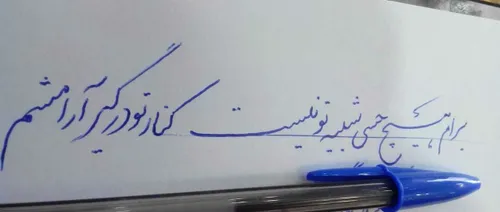 برام هیچ حسی شبیه تو نیست کنار تو درگیر آرامشم